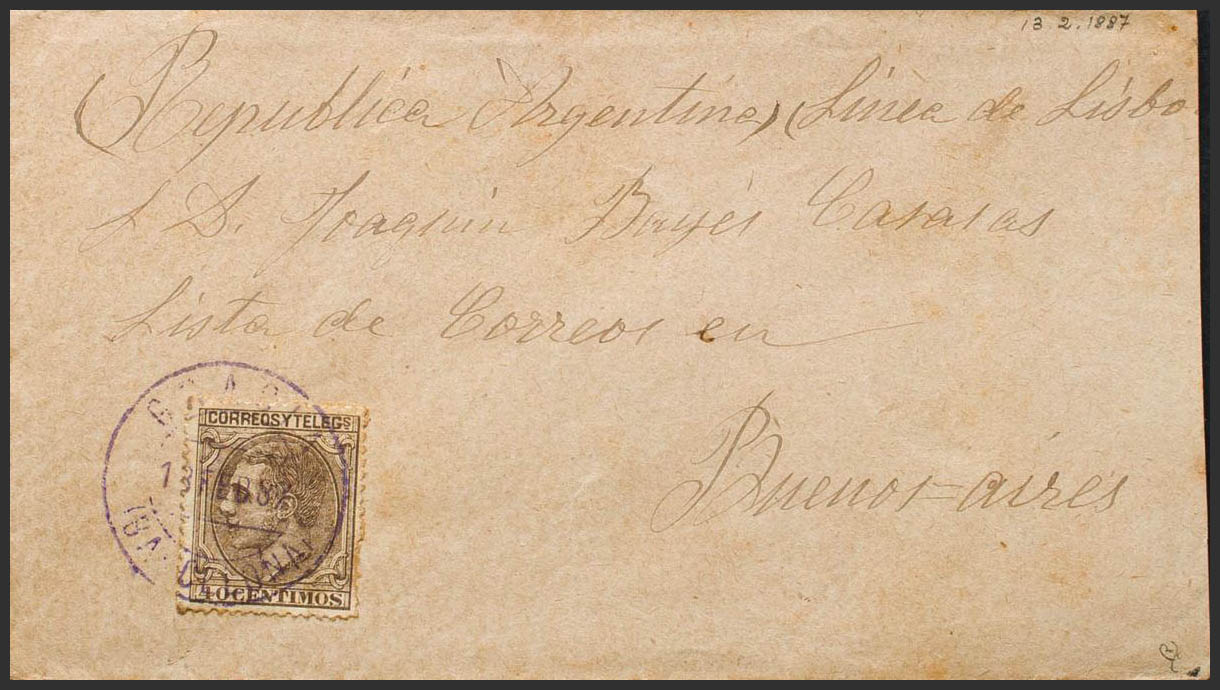 13.2.1887
(República Argentina) (Linea de Lisbo
S D. Joaquin Bayés Casasas
Lista de Correos en
Buenos=aires
CORREOS Y TELEGS
40 CENTIMOS